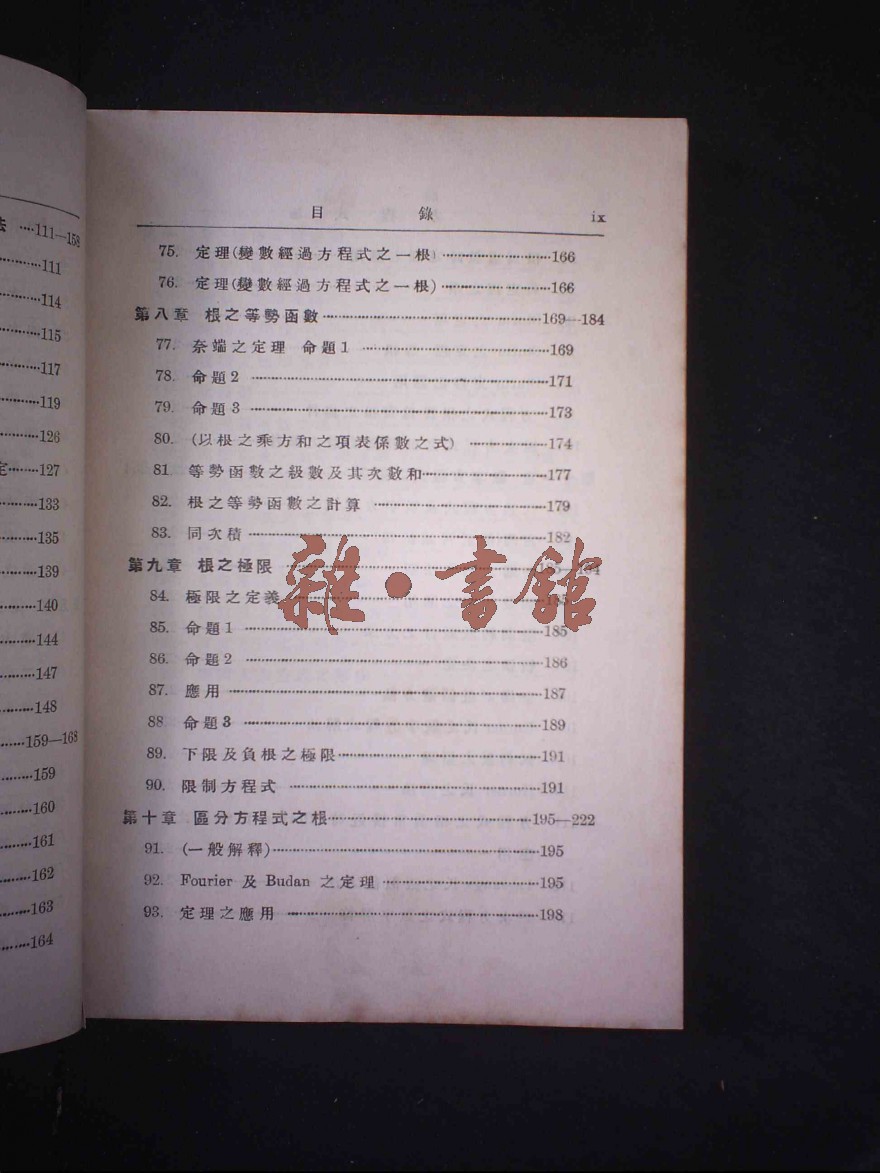 法 ····111—158
····111
····114
····115
····117
····119
····126
定····127
····133
····135
····139
····140
····144
····147
····148
····159—168
····159
····160
····161
····162
····163
····164
目 錄 ix
75. 定理(變數經過方程式之一根) ····166
76. 定理(變數經過方程式之一根) ····166
第八章 根之等勢函數 ····169—184
77. 奈端之定理 命題1 ····169
78. 命題2 ····171
79. 命題3 ····173
80. (以根之乘方和之項表係數之式) ····174
81. 等勢函數之級數及其次數和 ····177
82. 根之等勢函數之計算 ····179
83. 同次積 ····182
第九章 根之極限 ····
84. 極限之定義 ····185
85. 命題1 ····185
86. 命題2 ····186
87. 應用 ····187
88. 命題3 ····189
89. 下限及負根之極限 ····191
90. 限制方程式 ····191
第十章 區分方程式之根 ····195—222
91. (一般解釋) ····195
92. Fourier 及 Budan 之定理 ····195
93. 定理之應用 ····198
雜·書館